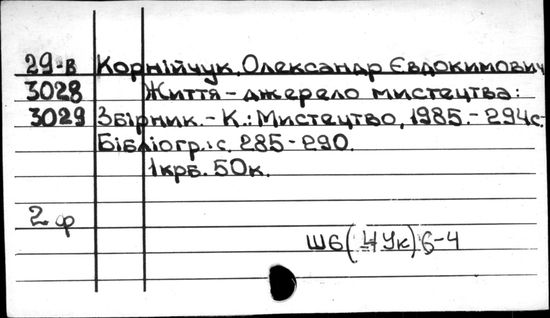 29-в Корнійчук, Олександр Євдокимович
3028 Життя - джерело мистецтва:
3029 Збірник. - К.: Мистецтво, 1985. - 294с.
Бібліогр.: с. 285-290.
1крб. 50к.
2 ф
Ш6(4Ук)6-4